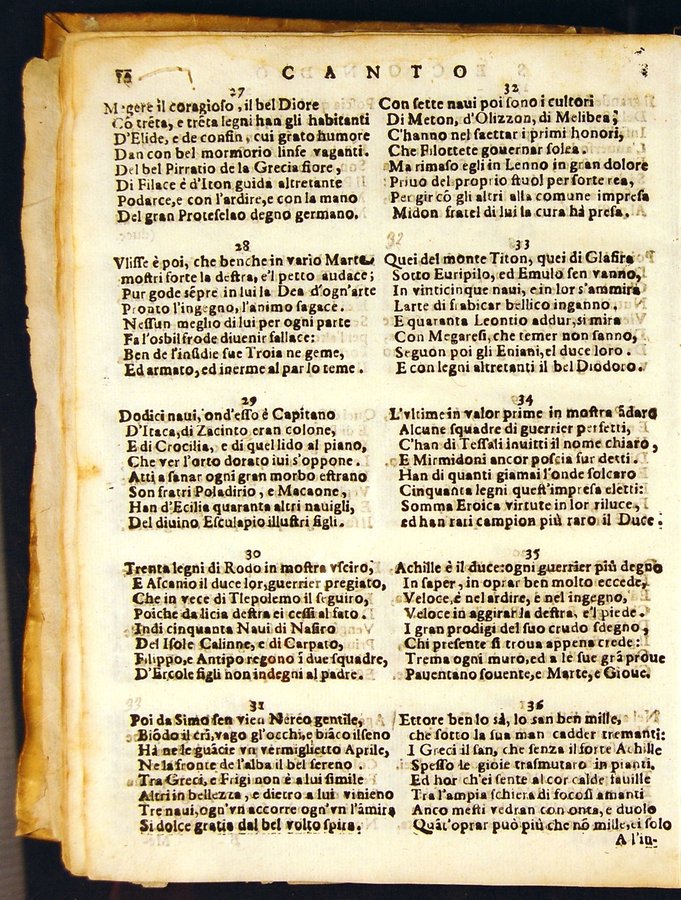 CANTO
27
Megere il coragioso, il bel Diore
Cō trēta, e trēta legni han gli habitanti
D'Elide, e de confin, cui grato humore
Dan con bel mormorio linfe vaganti.
Del bel Pirratio de la Grecia fiore,
Di Filace é d'Iton guida altretante
Podarce, e con l'ardire, e con la mano
Del gran Proteselao degno germano.
28
Vlisse è poi, che benche in vario Marte
mostri forte la destra, e'l petto audace;
Pur gode sēpre in lui la Dea d'ogn'arte
Pronto l'ingegno, l'animo sagace.
Nessun meglio di lui per ogni parte
Fa l'osbil frode diuenir fallace:
Ben de l'insidie sue Troia ne geme,
Ed armato, ed inerme al par lo teme.
29
Dodici naui, ond'esso è Capitano
D'Itaca, di Zacinto eran colone,
E di Crocilia, e di quel lido al piano,
Che ver l'orto dorato iui s'oppone.
Atti a sanar ogni gran morbo estrano
Son fratri Poladirio, e Macaone,
Han d'Ecilia quaranta altri nauigli,
Del diuino Esculapio illustri figli.
30
Trenta legni di Rodo in mostra vsciro,
E Ascanio il duce lor, guerrier pregiato,
Che in vece di Tlepolemo il seguiro,
Poiche da licia destra ei cessi al fato.
Indi cinquanta Naui di Nasiro
Del Isole Calinne, e di Carpato,
Filippo, e Antipo regono ī due squadre,
D'Ercole figli non indegni al padre.
31
Poi da Simo sen vien Nereo gentile,
Biōdo il crī, vago gl'occhi, e biāco il seno
Hà ne le guācie vn vermiglietto Aprile,
Ne la fronte de l'alba il bel sereno.
Tra Greci, e Frigi non è a lui simile
Altri in bellezza, e dietro a lui vinieno
Tre naui, ogn'vn accorre ogn'vn l'āmira
Si dolce gratia dal bel volto spira.
32
Con sette naui poi sono i cultori
Di Meton, d'Olizzon, di Melibea;
C'hanno nel saettar i primi honori,
Che Filottete gouernar solea.
Ma rimaso egli in Lenno in gran dolore
Priuo del proprio stuol per sorte rea,
Per gir cō gli altri alla comune impresa
Midon fratel di lui la cura hà presa.
33
Quei del monte Titon, quei di Glafira
Sotto Euripilo, ed Emulo sen vanno,
In vinticinque naui, e in lor s'ammira
Larte di frabicar bellico inganno.
E quaranta Leontio addur, si mira
Con Megaresi, che temer non fanno,
Seguon poi gli Eniani, el duce loro.
E con legni altretanti il bel Diodoro.
34
L'vltime in valor prime in mostra ādaro
Alcune squadre di guerrier perfetti,
C'han di Tessali inuitti il nome chiaro,
E Mirmidoni ancor poscia fur detti.
Han di quanti giamai l'onde solcaro
Cinquanta legni quest'impresa eletti:
Somma Eroica virtute in lor riluce,
ed han rari campion più raro il Duce.
35
Achille è il duce: ogni guerrier più degno
In saper, in oprar ben molto eccede,
Veloce, é nel ardire, é nel ingegno,
Veloce in aggirar la destra, e'l piede.
I gran prodigi del suo crudo sdegno,
Chi presente si troua appena crede:
Trema ogni muro, ed a le sue grā proue
Pauentano souente, e Marte, e Gioue.
36
Ettore ben lo sà, lo san ben mille,
che sotto la sua man cadder tremanti:
I Greci il san, che senza il forte Achille
Spesso le gioie trasmutaro in pianti,
Ed hor ch'ei sente al cor calde fauille
Tra l'ampia schiera di focosi amanti
Anco mesti vedran con onta, e duolo
Quāt'oprar può più che nō mille, ei solo
A l'in-